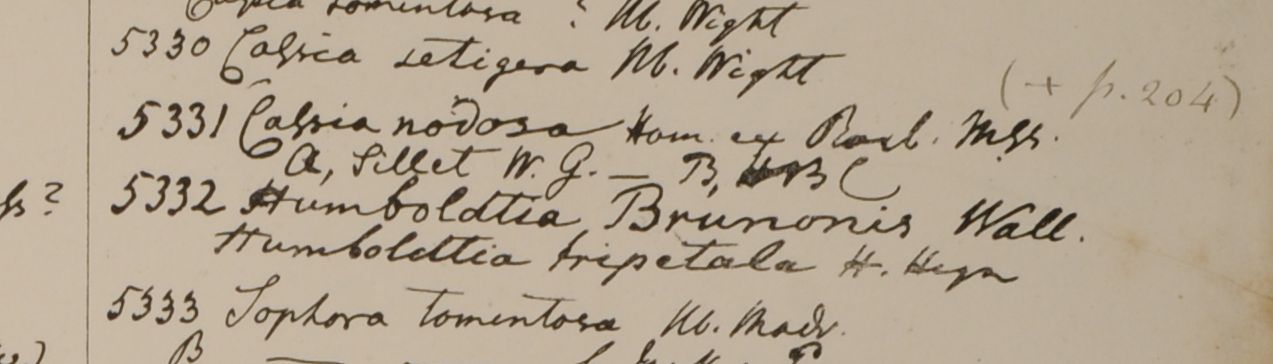 Cassia tomentosa ? Hb. Wight
5330 Cassia setigera Hb. Wight
(+ p. 204)
5331 Cassia nodosa Ham. ex Roxb. Mss.
A, Sillet W. G. — B, HBC
ss ?
5332 Humboldtia Brunonis Wall.
Humboldtia tripetala H. Heyn
5333 Sophora tomentosa Hb. Madr.
B